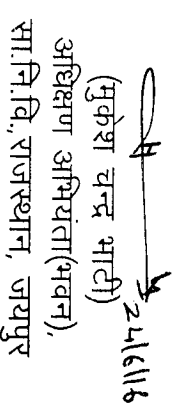 24/6/16
(मुकेश चन्द्र भाटी)
अधिक्षण अभियंता(भवन),
सा.नि.वि.,राजस्थान, जयपुर